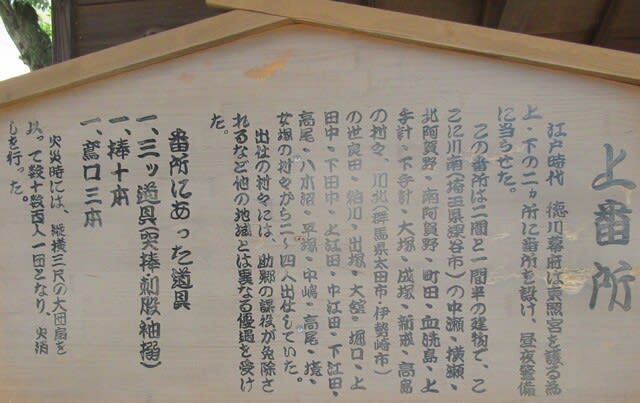 上番所
江戸時代 徳川幕府は東照宮を護る為
上・下の二ヵ所に番所を設け、昼夜警備
に当らせた。
この番所は二間と一間半の建物で、こ
こに川南(埼玉県深谷市)の中瀬・横瀬・
北阿賀野・南阿賀野・町田・血洗島・上
手計・下手計・大塚・成塚・新戒・高島
の村々、川北(群馬県太田市・伊勢崎市)
の世良田・粕川・出塚・大舘・堀口・上
田中・下田中・上江田・中江田・下江田・
高尾・八木沼・平塚・中嶋・高尾・境・
女塚の村々から二〜四人出仕していた。
出仕の村々には、助郷の課役が免除さ
れるなど他の地域とは異なる優遇を受け
た。
番所にあった道具
一、三ッ道具(突棒刺股袖搦)
一、棒十本
一、鳶口三本
火災時には、縦横三尺の大団扇を
以って数十数百人一団となり、火消
しを行った。